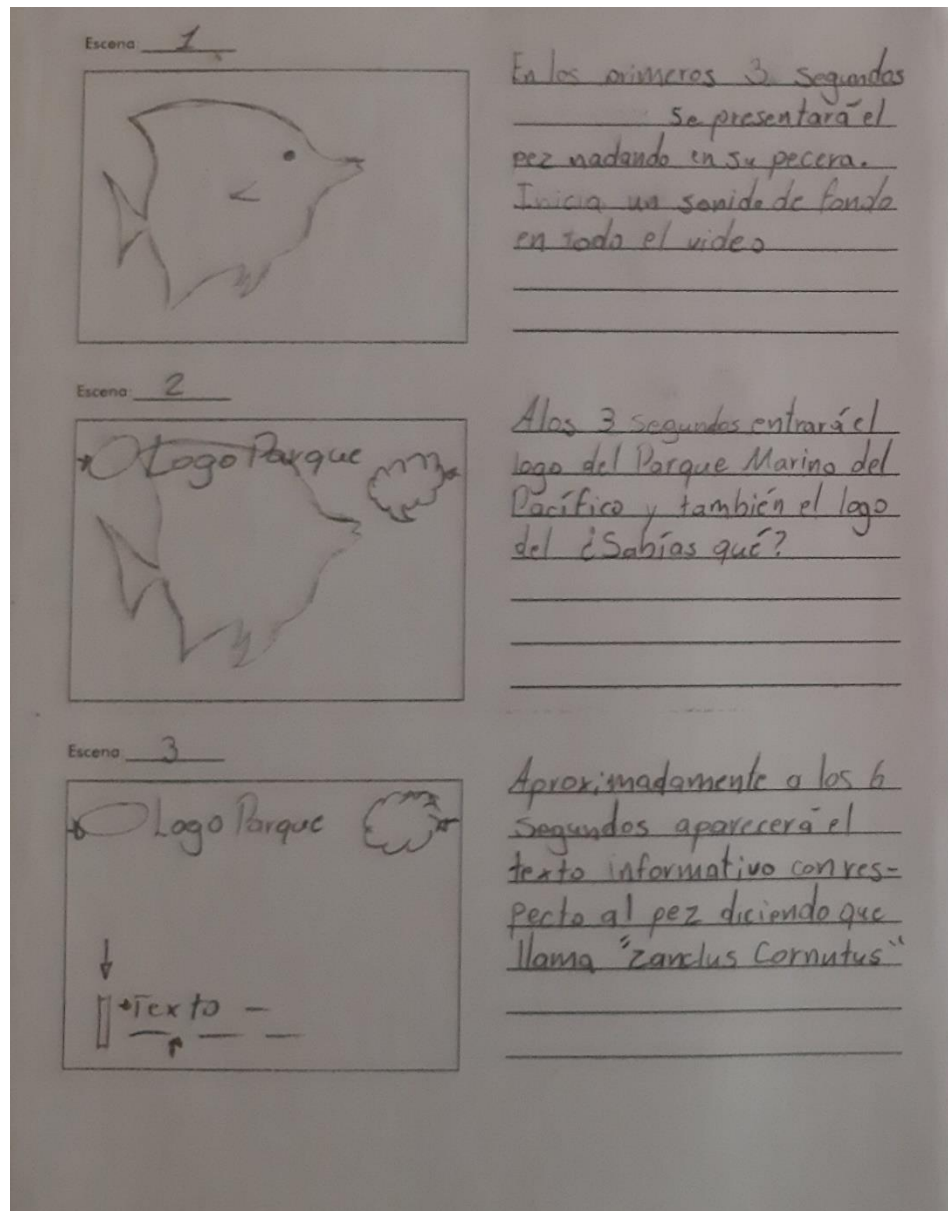 Escena: 1
En los primeros 3 segundos
se presentará el
pez nadando en su pecera.
Inicia un sonido de fondo
en todo el video
Escena: 2
Logo Parque
A los 3 segundos entrará el
logo del Parque Marino del
Pacífico y también el logo
del ¿Sabías qué?
Escena: 3
Logo Parque
Texto
Aproximadamente a los 6
segundos aparecerá el
texto informativo con res-
pecto al pez diciendo que
llama "Zanclus Cornutus"